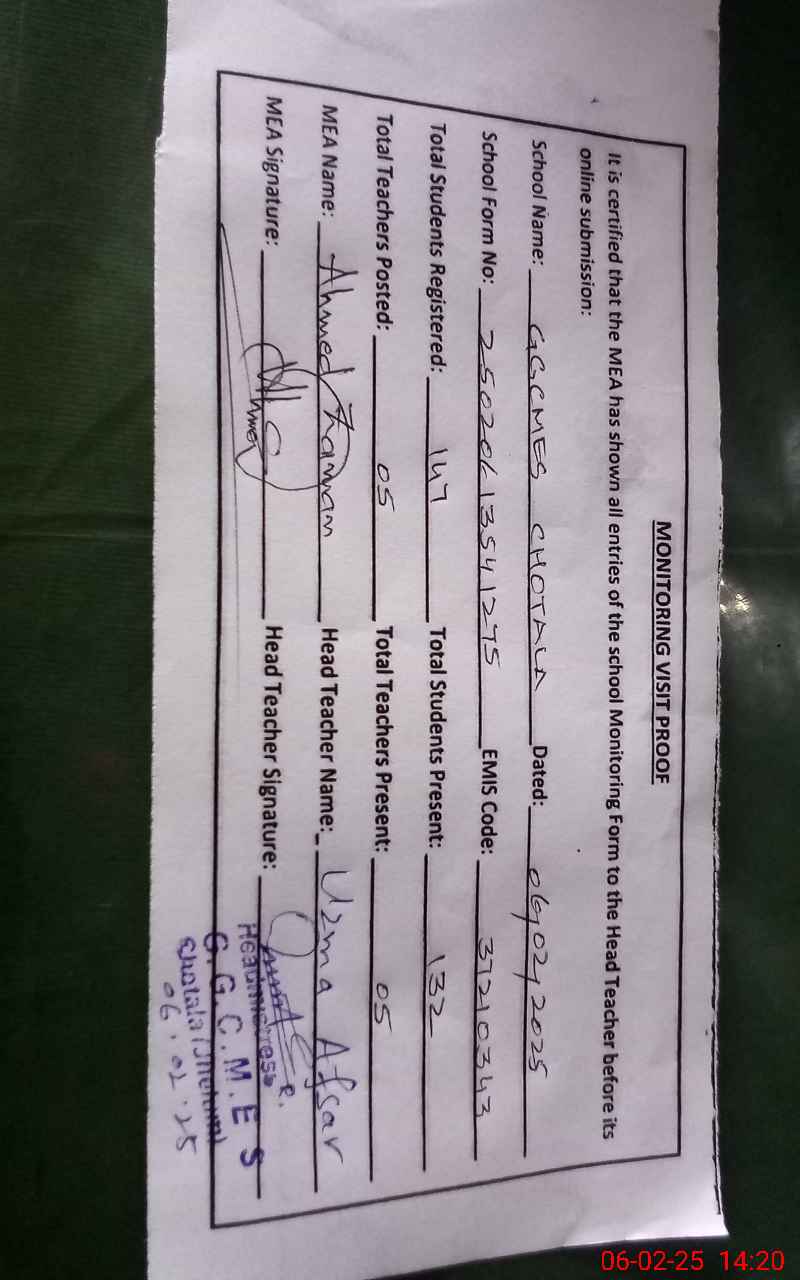 MONITORING VISIT PROOF
It is certified that the MEA has shown all entries of the school Monitoring Form to the Head Teacher before its
online submission:
School Name: GGCMES CHOTALA Dated: 06/02/2025
School Form No: 25020613541275 EMIS Code: 37210343
Total Students Registered: 147 Total Students Present: 132
Total Teachers Posted: 05 Total Teachers Present: 05
MEA Name: Ahmed Zaman Head Teacher Name: Uzma Afsar
MEA Signature: Head Teacher Signature:
Headmistress
G.G.C.M.E S
Chotala (Jhelum)
06.02.25
06-02-25 14:20